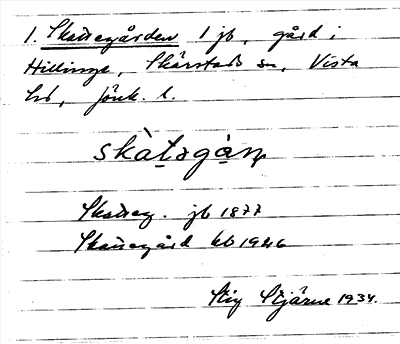 1. Skattegården 1 jb, gård i
Hillinge, Skärstads sn, Vista
hd, Jönk. l.
skàt̲sgàṇ
Skatteg. jb 1877
Skattegård kb 1926
Stig Stjärne 1934.